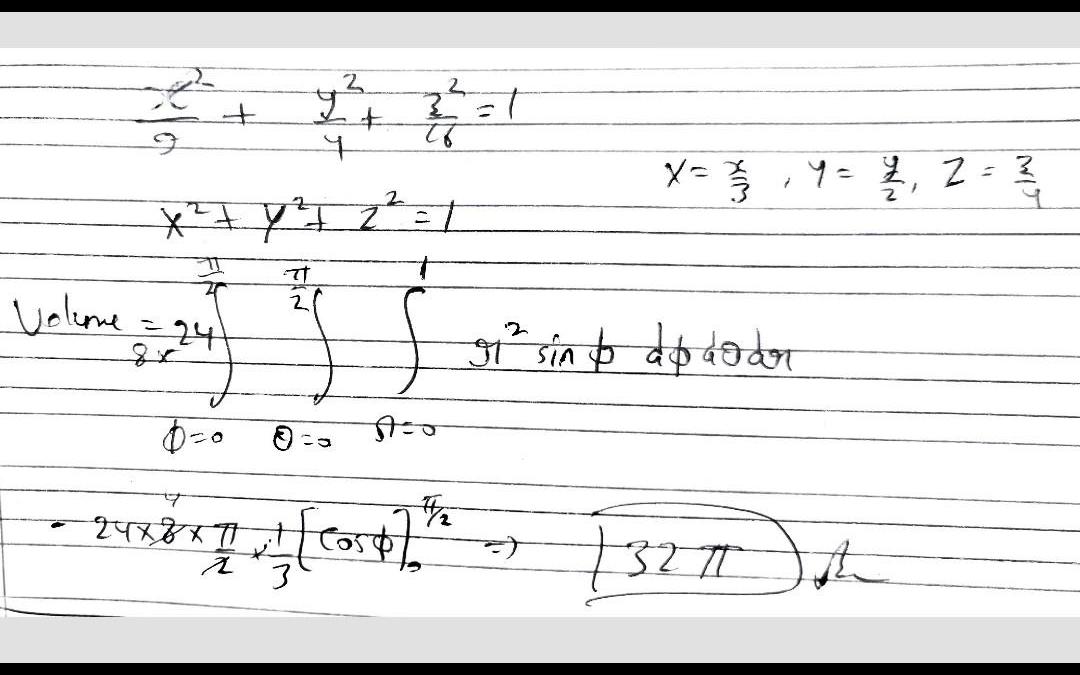 x²/9 + y²/4 + z²/16 = 1
X = x/3 , Y = y/2, Z = z/4
X² + Y² + Z² = 1
Volume = 8 x 24 ∫_{ϕ=0}^{π/2} ∫_{θ=0}^{π/2} ∫_{r=0}^{1} r² sin ϕ dϕ dθ dr
- 24 x 8 x π/2 x 1/3 [cos ϕ]_0^{π/2} => 32 π